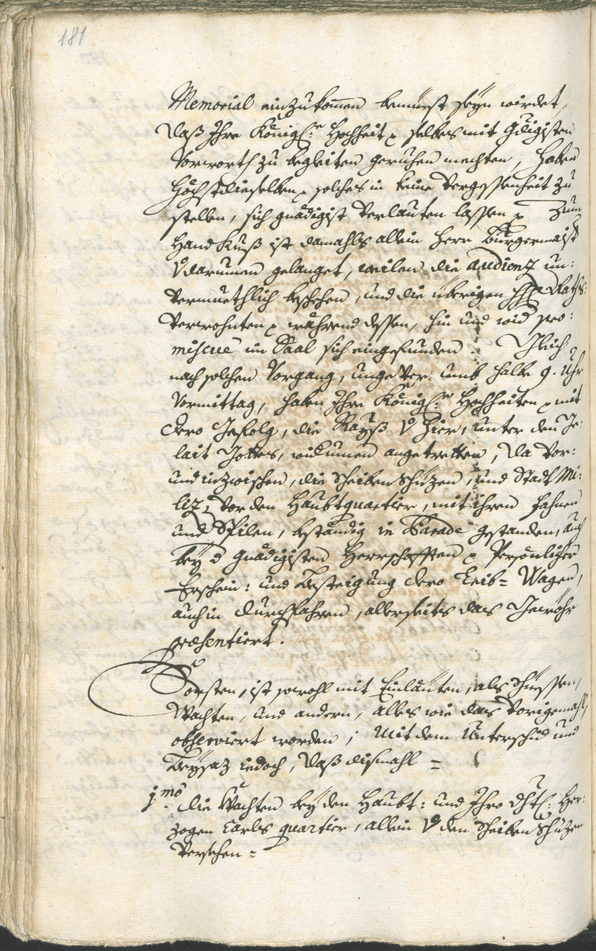 181
Memorial einzukommen bemüest seyn würdet,
daß Ihre Königl: Hochheit selbes mit Gdigisten
Vorwort zu begleiten geruhen mechten, haben
Höchstdieselben solches in keine Vergessenheit zu
stellen, sich gnädigist verlauten lassen Zum
Hand Kuß ist damahls allein Herr Burgermaist
darumen gelanget, weilen die audienz un:
vermuthlich beschehen, und die übrigen Raths
Verwohnten während dessen, hin und wid pro:
miscue im Saal sich eingefunden.
nach solchen Vorgang, ungever umb halbe 9. Uhr
Vormittag, haben Ihre Königl: Hochheiten mit
dero Gefolg, die Rayß v hier, unter dem Ge:
lait Gottes, widumen angetretten, da vor:
und inzwischen, die Scheiben Schüzen, und Stadt Mi:
liz, vor den Haubtquartier, mit ihren Fahnen
und Spilen, beständig in Parade gestanden, auch
bey d Gnädigisten Herrschafften Persönlicher
Erschein: und Besteigung dero Leib= Wagen,
auch in Durchfahren, allerseites das Gewöhr
præsentiert.
Sonsten, ist sowohl mit Einlauten, als Schüssen,
Wachten, und andern, alles wie das vorigemahl,
observiert worden; Mit dem Unterschid und
Beysaz iedoch, daß dismahl =
1mo. die Wachten bey den Haubt: und Ihro Dht: Her:
zogen Carls quartier, allein v den Scheiben Schüzen
versehen =